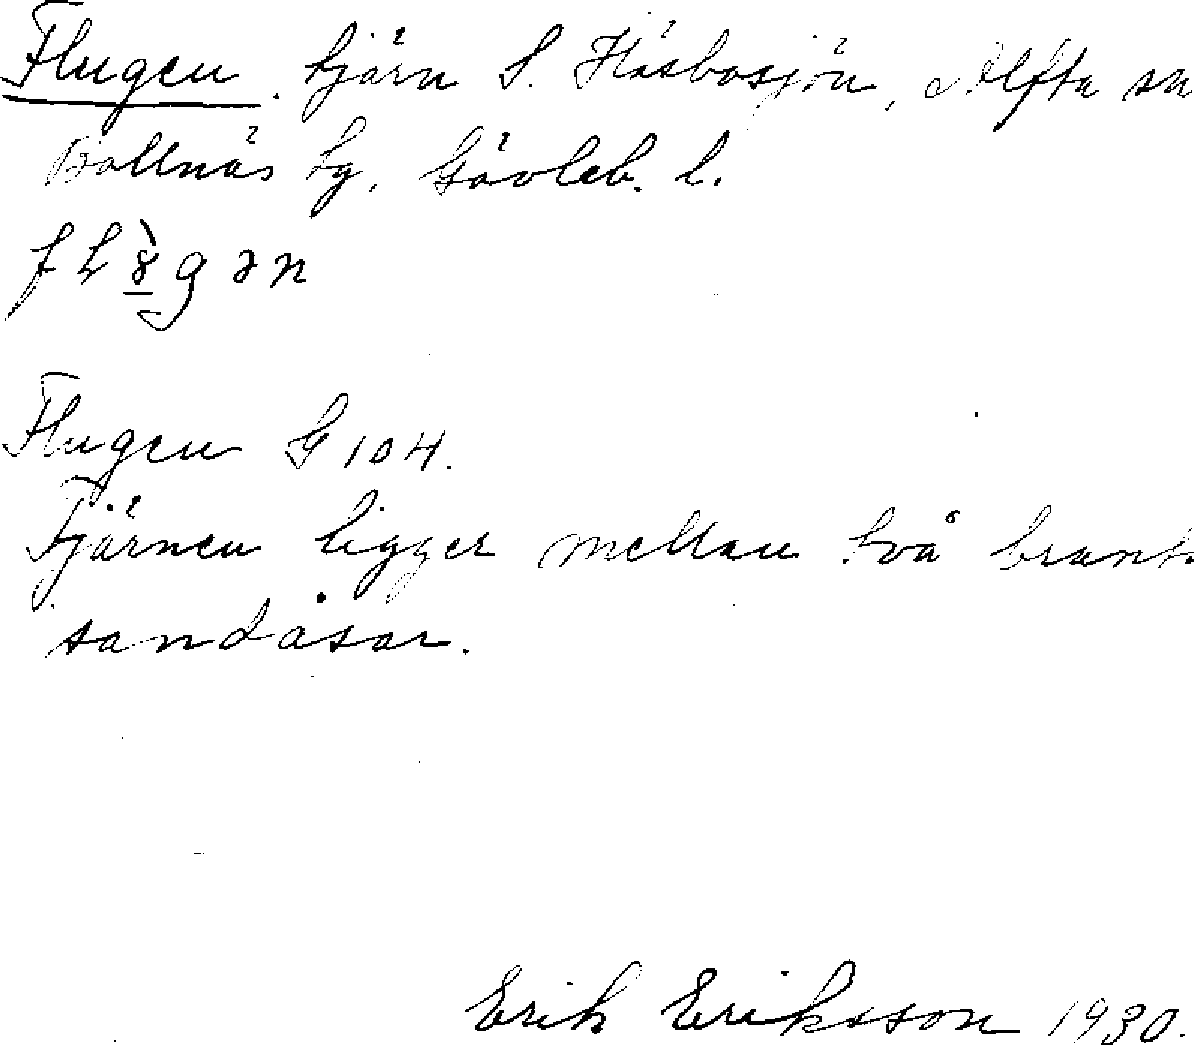 Flugen. tjärn S. Häsbosjön, Alfta sn
Bollnäs tg, Gävleb. l.
Flugen G 104.
Tjärnen ligger mellan två branta
sandåsar.
Erik Eriksson 1930.